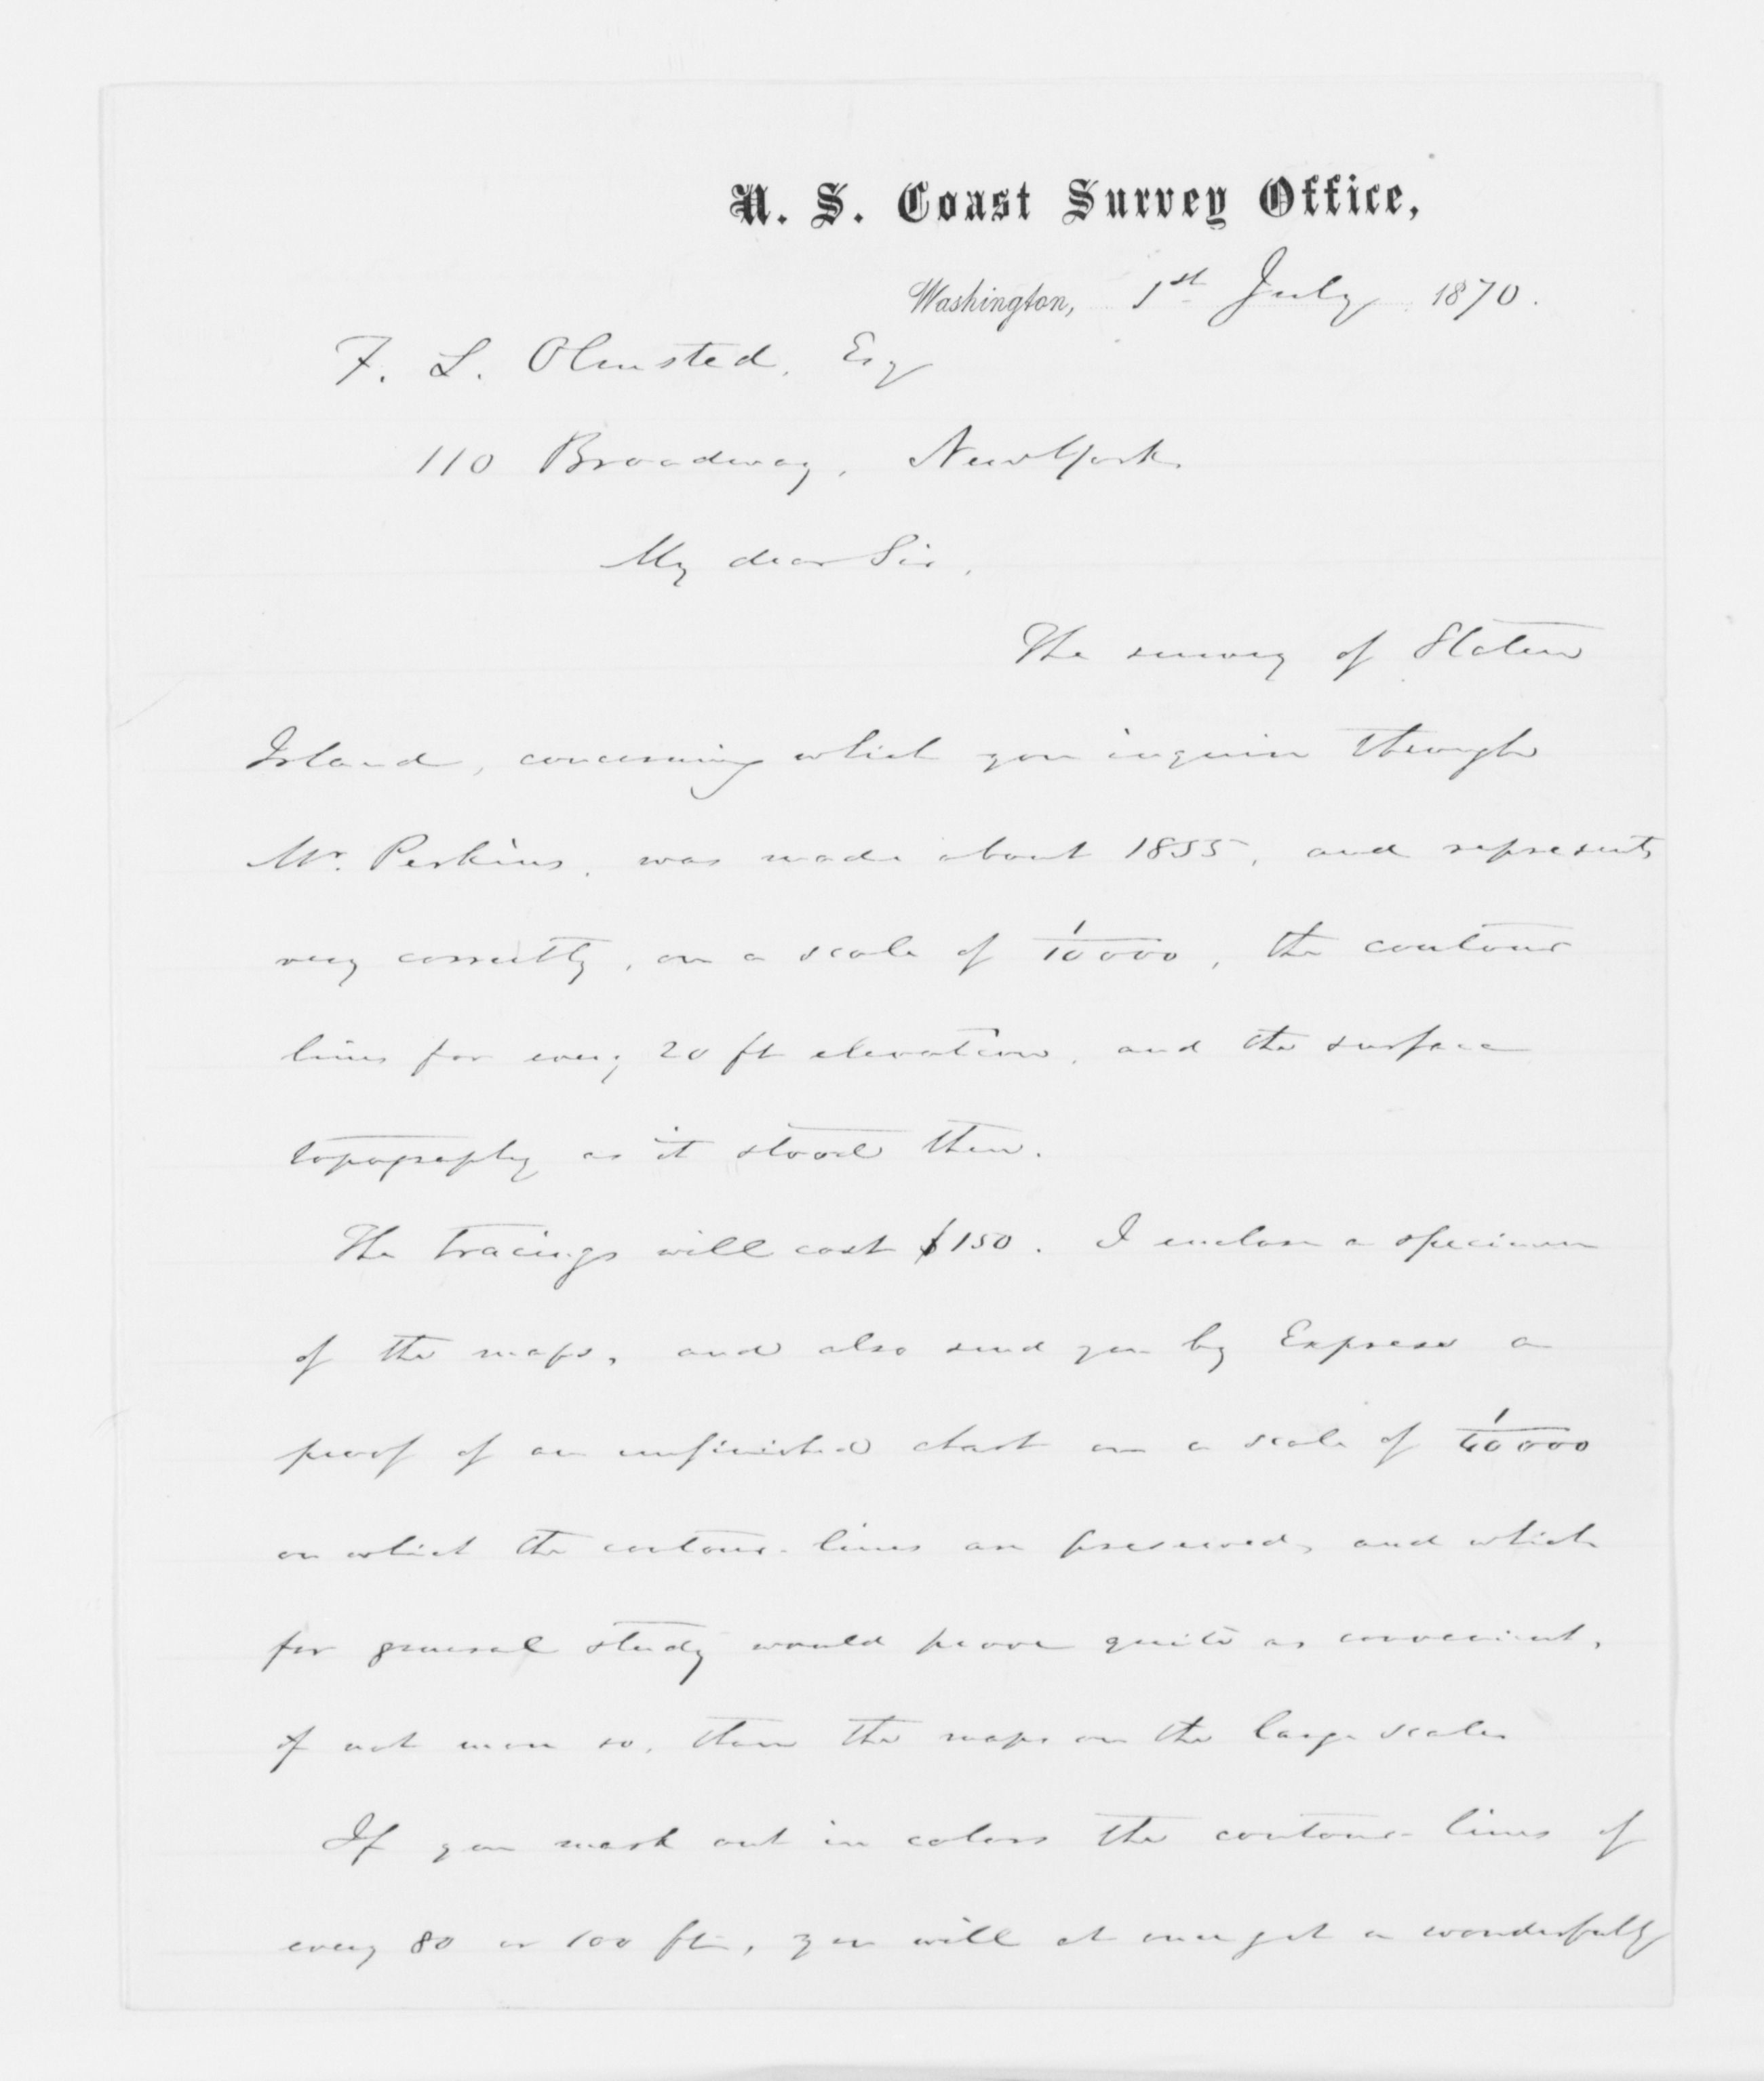 U. S. Coast Survey Office,
Washington, 1st July 1870.
F. L. Olmsted, Esq
110 Broadway, New York.
My dear Sir,
The survey of Staten
Island, concerning which you inquire through
Mr. Perkins, was made about 1855, and represents
very correctly, on a scale of 1/10000, the contour
lines for every 20 ft elevation, and the surface
topography as it stood then.
The tracings will cost $150. I enclose a specimen
of the maps, and also send you by Express a
proof of an unfinished chart on a scale of 1/40000
on which the contour-lines are preserved, and which
for general study would prove quite as convenient,
if not more so, than the maps on the large scales
If you mark out in colors the contour-lines of
every 80 or 100 ft, you will at once get a wonderfully